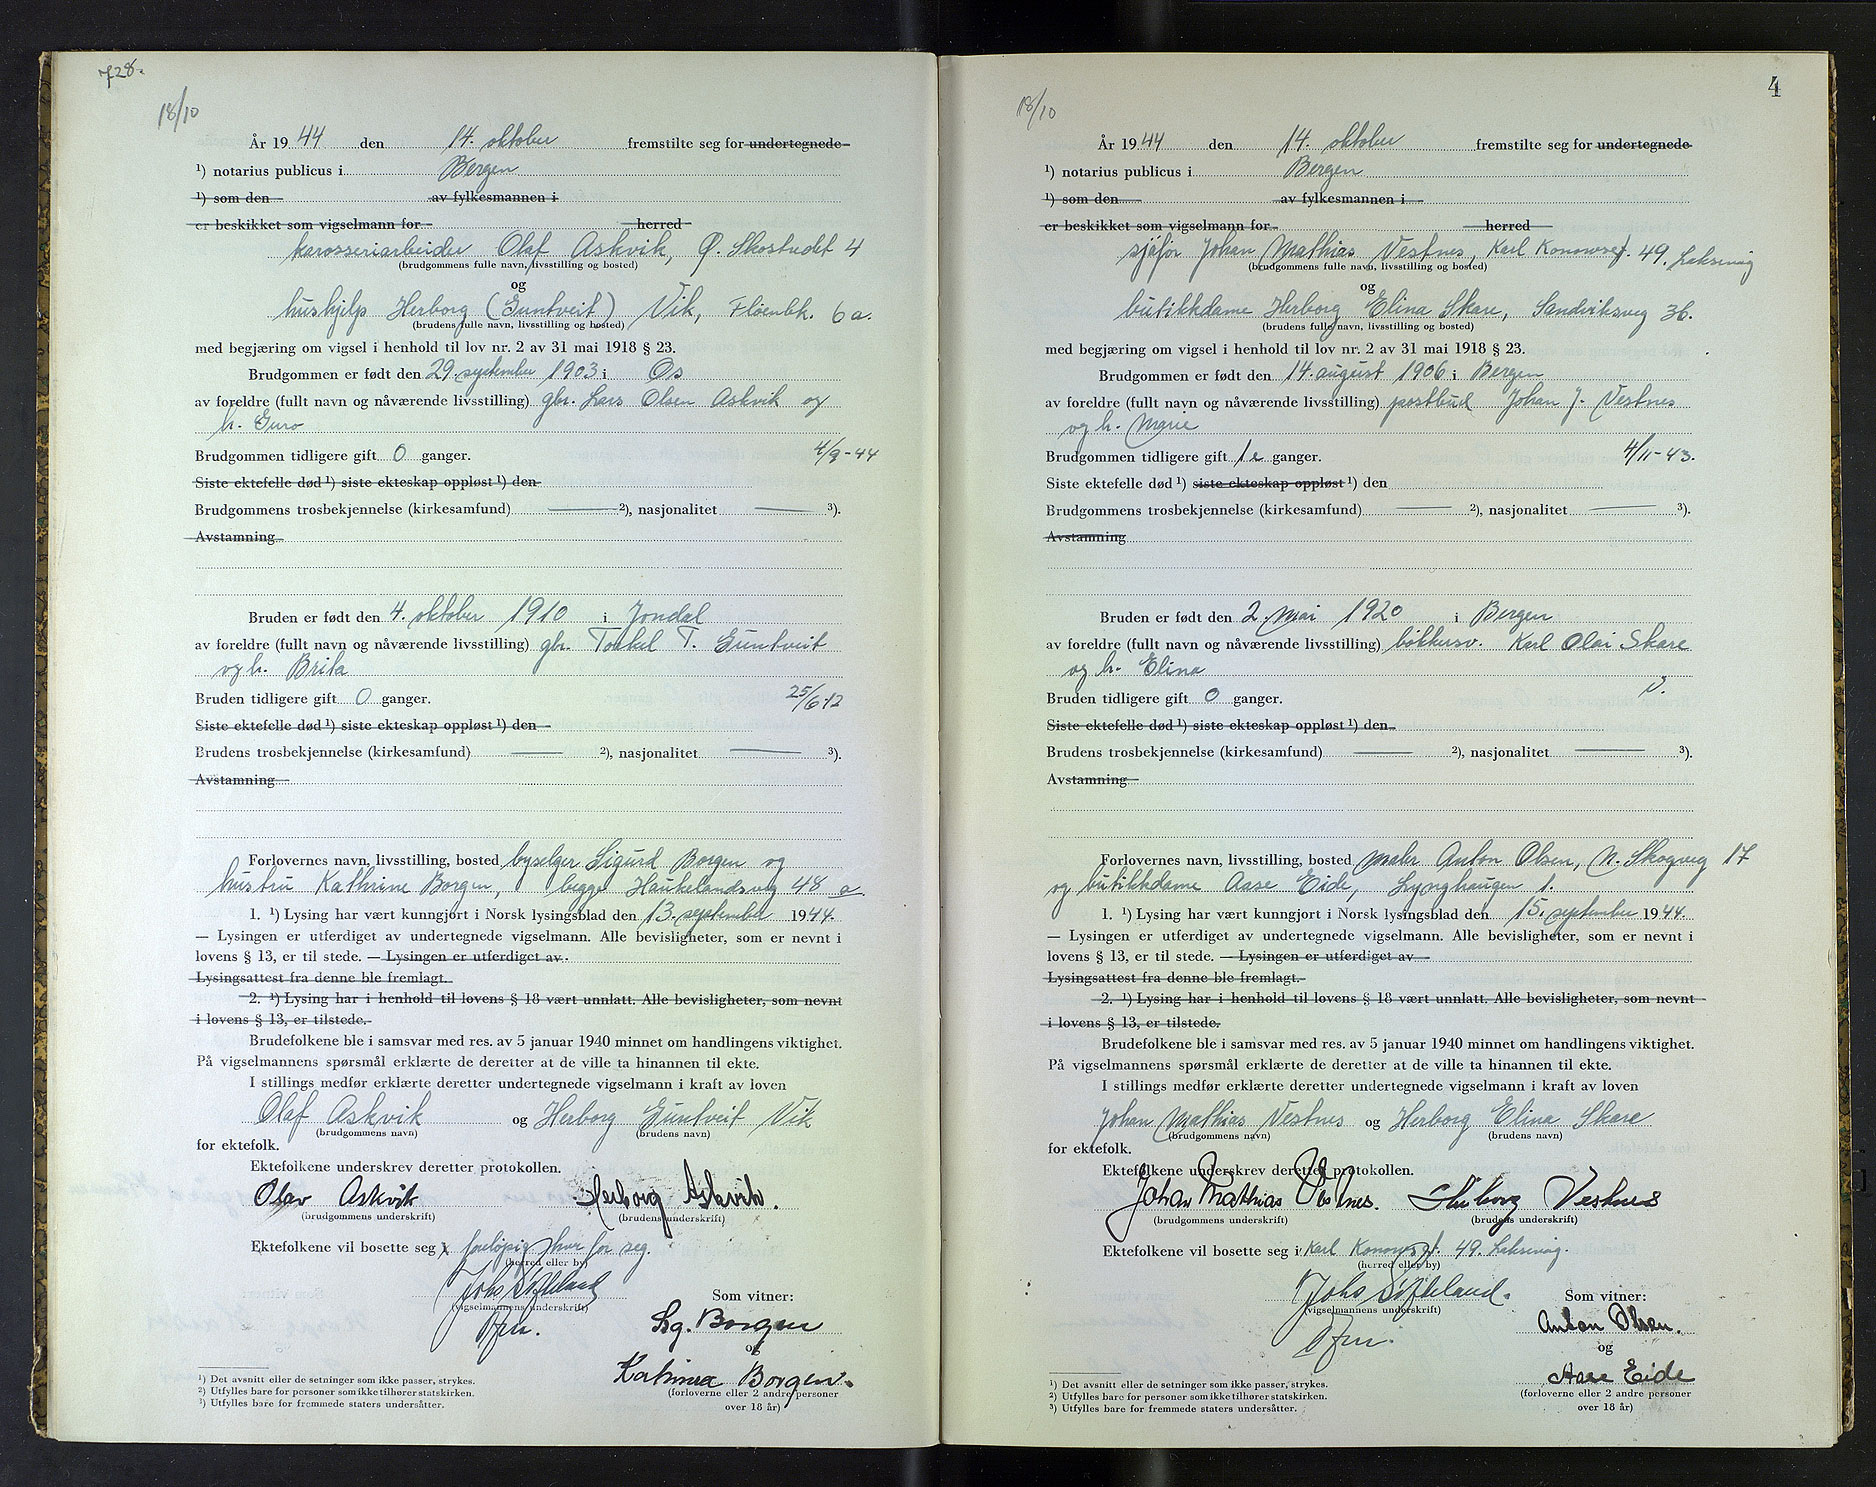 728.
18/10
År 1944 den 14. oktober fremstilte seg for undertegnede
¹) notarius publicus i Bergen
¹) som den av fylkesmannen i
er beskikket som vigselmann for herred
karosseriarbeider Olaf Askvik, Ø. Skostredet 4
(brudgommens fulle navn, livsstilling og bosted)
og
hushjelp Herborg (Guntveit) Vik, Fløenbk. 6a.
(brudens fulle navn, livsstilling og bosted)
med begjæring om vigsel i henhold til lov nr. 2 av 31 mai 1918 § 23.
Brudgommen er født den 29. september 1903 i Os
av foreldre (fullt navn og nåværende livsstilling) gbr. Lars Olsen Askvik og
h. Guro
Brudgommen tidligere gift 0 ganger. 4/9-44
Siste ektefelle død ¹) siste ekteskap oppløst ¹) den
Brudgommens trosbekjennelse (kirkesamfund) ²), nasjonalitet ³).
Avstamning
Bruden er født den 4. oktober 1910 i Jondal
av foreldre (fullt navn og nåværende livsstilling) gbr. Torkel T. Guntveit
og h. Brita
Bruden tidligere gift 0 ganger. 25/6-12
Siste ektefelle død ¹) siste ekteskap oppløst ¹) den
Brudens trosbekjennelse (kirkesamfund) ²), nasjonalitet ³).
Avstamning
Forlovernes navn, livsstilling, bosted byselger Sigurd Borgen og
hustru Kathrine Borgen, begge Haukelandsveg 48 a
1. ¹) Lysing har vært kunngjort i Norsk lysingsblad den 13. september 1944.
— Lysingen er utferdiget av undertegnede vigselmann. Alle bevisligheter, som er nevnt i
lovens § 13, er til stede. — Lysingen er utferdiget av
Lysingsattest fra denne ble fremlagt.
2. ¹) Lysing har i henhold til lovens § 18 vært unnlatt. Alle bevisligheter, som nevnt
i lovens § 13, er tilstede.
Brudefolkene ble i samsvar med res. av 5 januar 1940 minnet om handlingens viktighet.
På vigselmannens spørsmål erklærte de deretter at de ville ta hinannen til ekte.
I stillings medfør erklærte deretter undertegnede vigselmann i kraft av loven
Olaf Askvik og Herborg Guntveit Vik
(brudgommens navn) (brudens navn)
for ektefolk.
Ektefolkene underskrev deretter protokollen.
Olav Askvik Herborg Askvik.
(brudgommens underskrift) (brudens underskrift)
Ektefolkene vil bosette seg i foreløpig hver for seg.
(herred eller by)
(vigselmannens underskrift)
Som vitner:
Sig. Borgen
og
Katrina Borgen.
(forloverne eller 2 andre personer
over 18 år)
¹) Det avsnitt eller de setninger som ikke passer, strykes.
²) Utfylles bare for personer som ikke tilhører statskirken.
³) Utfylles bare for fremmede staters undersåtter.
4
18/10
År 1944 den 14. oktober fremstilte seg for undertegnede
¹) notarius publicus i Bergen
¹) som den av fylkesmannen i
er beskikket som vigselmann for herred
sjåfør Johan Mathias Vestnes, Karl Konowsgt. 49. Laksevåg
(brudgommens fulle navn, livsstilling og bosted)
og
butikkdame Herborg Elina Skare, Sandviksveg 36.
(brudens fulle navn, livsstilling og bosted)
med begjæring om vigsel i henhold til lov nr. 2 av 31 mai 1918 § 23.
Brudgommen er født den 14. august 1906 i Bergen
av foreldre (fullt navn og nåværende livsstilling) postbud Johan J. Vestnes
og h. Marie
Brudgommen tidligere gift 1e ganger. 4/11-43.
Siste ektefelle død ¹) siste ekteskap oppløst ¹) den
Brudgommens trosbekjennelse (kirkesamfund) ²), nasjonalitet ³).
Avstamning
Bruden er født den 2. mai 1920 i Bergen
av foreldre (fullt navn og nåværende livsstilling) bøkkersv. Karl Olai Skare
og h. Elina
Bruden tidligere gift 0 ganger.
Siste ektefelle død ¹) siste ekteskap oppløst ¹) den
Brudens trosbekjennelse (kirkesamfund) ²), nasjonalitet ³).
Avstamning
Forlovernes navn, livsstilling, bosted maler Anton Olsen, N. Skogveg 17
og butikkdame Aase Eide, Lynghaugen 1.
1. ¹) Lysing har vært kunngjort i Norsk lysingsblad den 15. september 1944.
— Lysingen er utferdiget av undertegnede vigselmann. Alle bevisligheter, som er nevnt i
lovens § 13, er til stede. — Lysingen er utferdiget av
Lysingsattest fra denne ble fremlagt.
2. ¹) Lysing har i henhold til lovens § 18 vært unnlatt. Alle bevisligheter, som nevnt
i lovens § 13, er tilstede.
Brudefolkene ble i samsvar med res. av 5 januar 1940 minnet om handlingens viktighet.
På vigselmannens spørsmål erklærte de deretter at de ville ta hinannen til ekte.
I stillings medfør erklærte deretter undertegnede vigselmann i kraft av loven
Johan Mathias Vestnes og Herborg Elina Skare
(brudgommens navn) (brudens navn)
for ektefolk.
Ektefolkene underskrev deretter protokollen.
Johan Mathias Vestnes. Herborg Vestnes
(brudgommens underskrift) (brudens underskrift)
Ektefolkene vil bosette seg i Karl Konowsgt. 49. Laksevåg.
(herred eller by)
(vigselmannens underskrift)
Som vitner:
Anton Olsen.
og
Aase Eide
(forloverne eller 2 andre personer
over 18 år)
¹) Det avsnitt eller de setninger som ikke passer, strykes.
²) Utfylles bare for personer som ikke tilhører statskirken.
³) Utfylles bare for fremmede staters undersåtter.